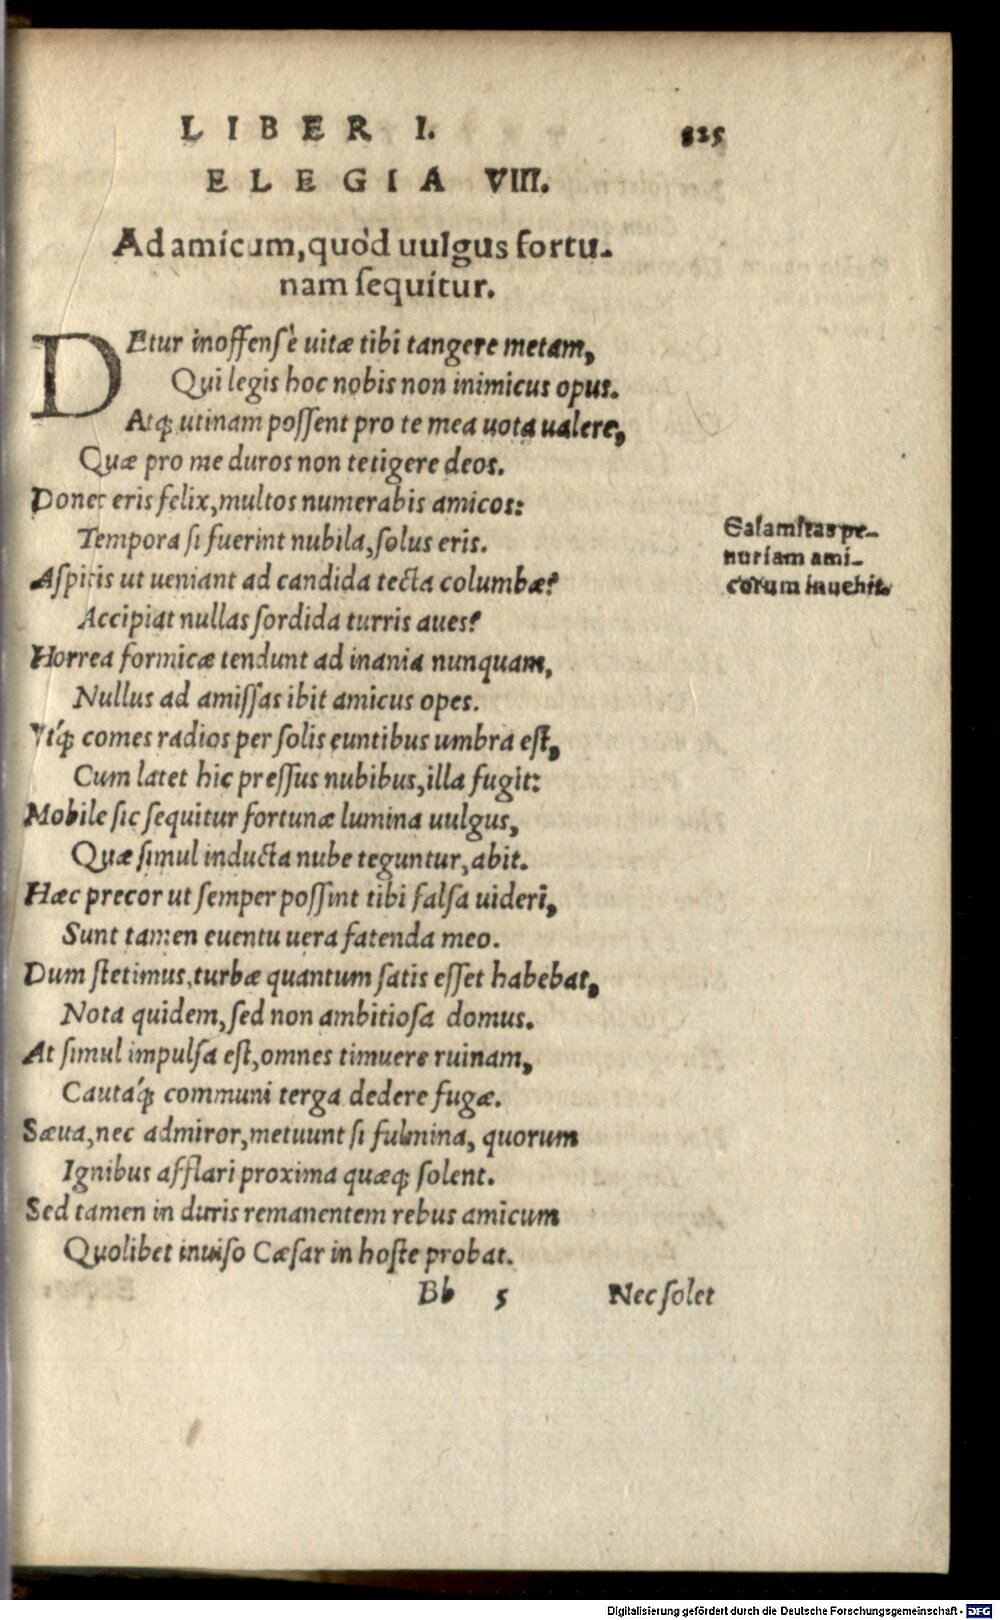 LIBER I. 825
ELEGIA VIII.
Ad amicum, quòd uulgus fortu-
nam ſequitur.
DEtur inoffenſè uitæ tibi tangere metam,
Qui legis hoc nobis non inimicus opus.
Atq; utinam poſſent pro te mea uota ualere,
Quæ pro me duros non tetigere deos.
Donec eris felix, multos numerabis amicos:
Tempora ſi fuerint nubila, ſolus eris.
Calamitas pe-
nuriam ami-
corum inuehit.
Aſpicis ut ueniant ad candida tecta columbæ?
Accipiat nullas ſordida turris aues?
Horrea formicæ tendunt ad inania nunquam,
Nullus ad amiſſas ibit amicus opes.
Vtq́; comes radios per ſolis euntibus umbra eſt,
Cum latet hic preſſus nubibus, illa fugit:
Mobile ſic ſequitur fortunæ lumina uulgus,
Quæ ſimul inducta nube teguntur, abit.
Hæc precor ut ſemper poſſint tibi falſa uideri,
Sunt tamen euentu uera fatenda meo.
Dum ſtetimus, turbæ quantum ſatis eſſet habebat,
Nota quidem, ſed non ambitioſa domus.
At ſimul impulſa eſt, omnes timuere ruinam,
Cautaq́; communi terga dedere fugæ.
Sæua, nec admiror, metuunt ſi fulmina, quorum
Ignibus afflari proxima quæq; ſolent.
Sed tamen in duris remanentem rebus amicum
Quolibet inuiſo Cæſar in hoſte probat.
Bb 5 Nec ſolet
Digitalisierung gefördert durch die Deutsche Forschungsgemeinschaft - DFG